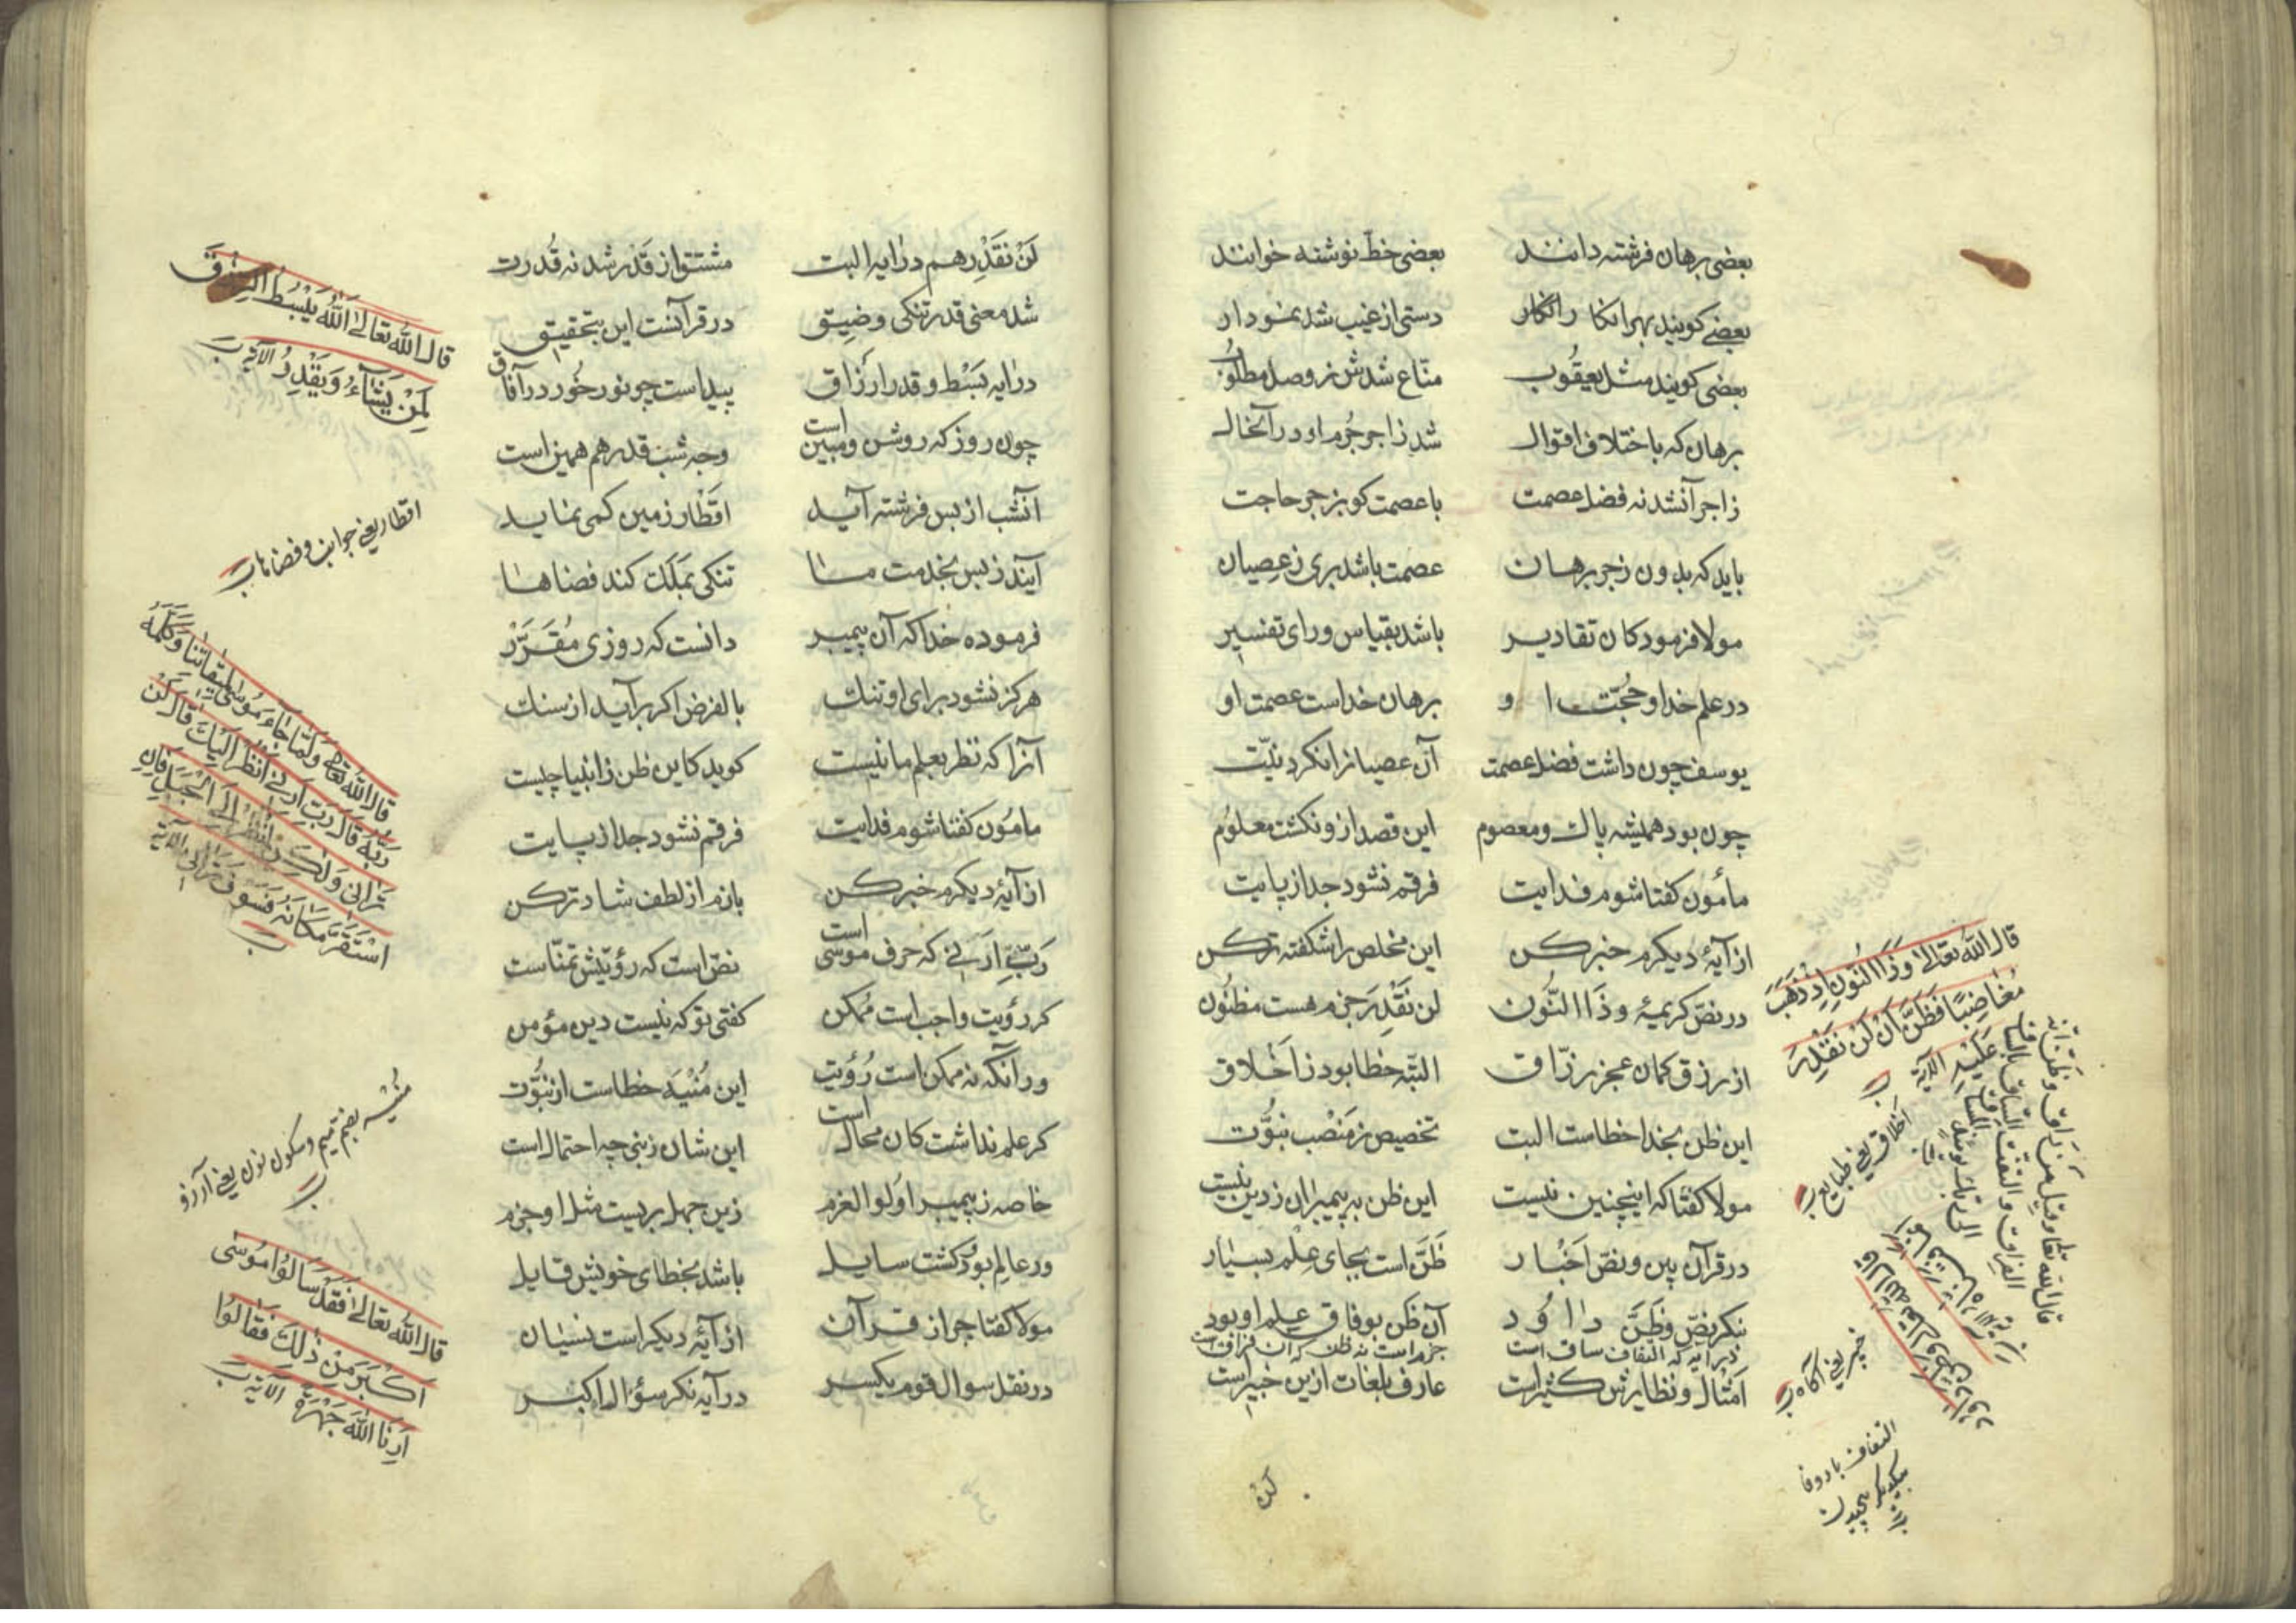 بعضی برهان فرشته دانند بعضی خطّ نوشته خوانند
بعضے کویند بهر انکار دستی از غیب شد نمودار
بعضی کویند مثل یعقُوب منّاع شدش ز وصل مطلُوب
برهان که باختلاف اقوال شد زاجر جُرم او در آنحال
زاجر آنشد نه فضل عصمت با عصمت کو بزجر حاجت
باید که بدون زجر برهان عصمت باشد بری ز عِصیان
مولا فرمود کان تقادیر باشد بقیاس و رای تفسیر
در علم خدا و حُجّت او برهان خداست عصمت او
یوسف چون داشت فضل عصمت آن عصیانرا نکرد نیّت
چون بود همیشه پاك و معصوم این قصد ازو نکشت معلُوم
مأمون کفتا شوم فدایت فرقم نشود جدا ز پایت
از آیهٔ دیکرم خبر کن این مخلص را شکفته تر کن
در نصّ کریمهٔ وذَا النّون لن نَقْدِرَ جزم هست مظنُون
از رزق کمان عجز رزّاق البتّه خطا بود ز اَخْلاق
این ظن بخدا خطاست البت تخصیص ز مَنْصَب نبوّت
مولا کفتا که اینچنین نیست این ظن به پیمبران ز دین نیست
در قرآن بین و نصّ اَخبٰار ظَنّ است بجای عِلْم بسیٰار
بنکر نصّ وظَنَّ داوُد آن ظن بوفاق علم او بود
در آیه که التفاف ساق است جزم است نه ظن که آن فراق است
اَمْثال و نظایرش کثیر است عارف بلغات ازین خبیر است
قال اللّه تعالیٰ وذَا النّونِ اِذْ ذَهَبَ
مُغٰاضِبًا فَظَنَّ اَنْ لَنْ نَقْدِرَ
عَلَیْهِ الآیة
اَخلاق یعنی طبایع
قال اللّه تعالی وقیل مَنْ رٰاق وظَنّ انّه
الفراق والتفّت السّاق بالسّاق
الی ربّك یومئذ المساق
خبیر یعنی آکاه
التفاف با دو فا
بیکدیکر پیچیدن
لَنْ
لَنْ نَقْدِر هم در آیه البت مشتق از قَدْر شد نه قُدرت
شد معنی قدر تنکی و ضِیق در قرآنست این بتحقیق
در آیه بَسْط و قدر اَرزاق پیداست چو نور خُور در آفاق
چون روز که روشن و مبین است وجه شب قدر هم همین است
آنشب از بس فرشته آید اَقْطار زمین کمی نماید
آیند ز بس بخدمت ما تنکی بمَلَك کند فضاها
فرموده خدا که آن پیمبر دانست که روزی مُقَرَّرْ
هرکز نشود برای او تنك بالفرض اکر برآید از سنك
آنرا که نظر بعلم ما نیست کوید کاین ظن ز انبیا چیست
مامُون کفتا شوم فدایت فرقم نشود جدا ز پایت
از آیهٔ دیکرم خبر کن بازم از لطف شاد تر کن
رَبِّ اَرِنی که حرف موسی است نصّ است که رؤیتش تمنّاست
کر رؤیت واجب است مُمکن کفتی تو که نیست دین مؤمن
ور آنکه نه ممکن است رُؤیت این مُنْیَه خطاست از نبُوّت
کر علم نداشت کان محال است این شان ز نبی چه احتمال است
خاصه ز پیمبر اُولوالعزم زین جهل بریست مثل او جزم
ور عالم بود کشت سایل باشد بخطای خویش قایل
مولا کفتا جز از قرآن از آیهٔ دیکر است نسیان
در نقل سوال قوم یکسر در آیه نکر سؤال اکبر
قال اللّه تعالیٰ اَللّٰهُ یَبْسُطُ الرِّزْقَ
لِمَنْ یَشٰآءُ وَیَقْدِرُ الآیة
اقطار یعنی جوانب و فضاها
قال اللّه تعالی وَلَمّٰا جٰآءَ مُوسٰی لِمیقٰاتِنٰا وَکَلَّمَهُ
رَبُّهُ قٰالَ رَبِّ اَرِنی اَنْظُرْ اِلَیْكَ قٰالَ لَنْ
تَرٰانی وَلٰکِنِ انْظُرْ اِلَی الْجَبَلِ فَاِنِ
اسْتَقَرَّ مَکٰانَهُ فَسَوْفَ تَرٰانی الآیة
مُنیه بضم میم و سکون نون یعنی آرزو
قال اللّه تعالیٰ فَقَدْ سَاَلُوا مُوسٰی
اَکْبَرَ مِنْ ذٰلِكَ فَقٰالُوا
اَرِنَا اللّٰهَ جَهْرَةً الآیة